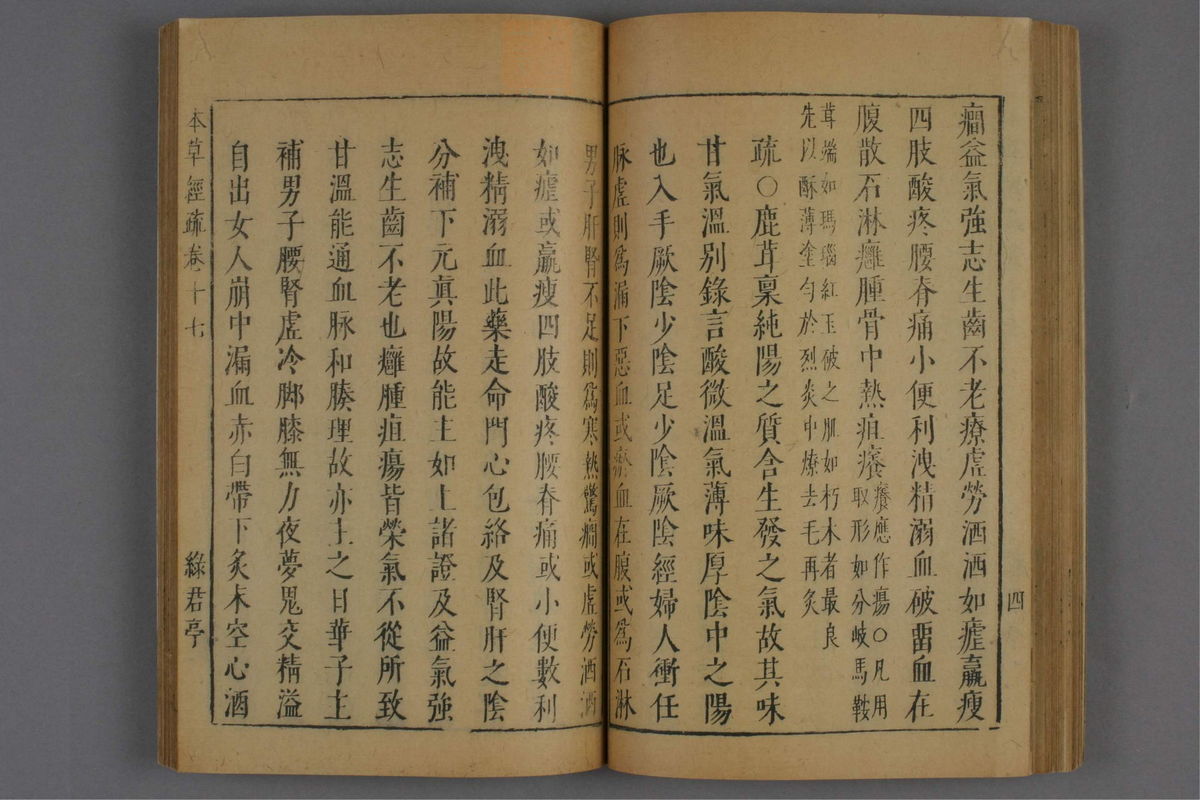 四
癎益氣強志生齒不老療虛勞洒洒如瘧羸瘦
四肢酸疼腰脊痛小便利洩精溺血破畱血在
腹散石淋癰腫骨中熱疽癢
癢應作瘍〇凡用
取形如分岐馬鞍
茸端如瑪瑙紅玉破之肌如朽木者最良
先以酥薄塗勻於烈炎中燎去毛再炙
疏〇鹿茸稟純陽之質含生發之氣故其味
甘氣溫別錄言酸微溫氣薄味厚陰中之陽
也入手厥陰少陰足少陰厥陰經婦人衝任
脉虛則爲漏下惡血或瘀血在腹或爲石淋
男子肝腎不足則爲寒熱驚癎或虛勞洒洒
如瘧或羸瘦四肢酸疼腰脊痛或小便數利
洩精溺血此藥走命門心包絡及腎肝之陰
分補下元眞陽故能主如上諸證及益氣強
志生齒不老也癰腫疽瘍皆榮氣不從所致
甘溫能通血脉和腠理故亦主之日華子主
補男子腰腎虛冷脚膝無力夜夢鬼交精溢
自出女人崩中漏血赤白帶下炙末空心酒
本草經疏卷十七
綠君亭